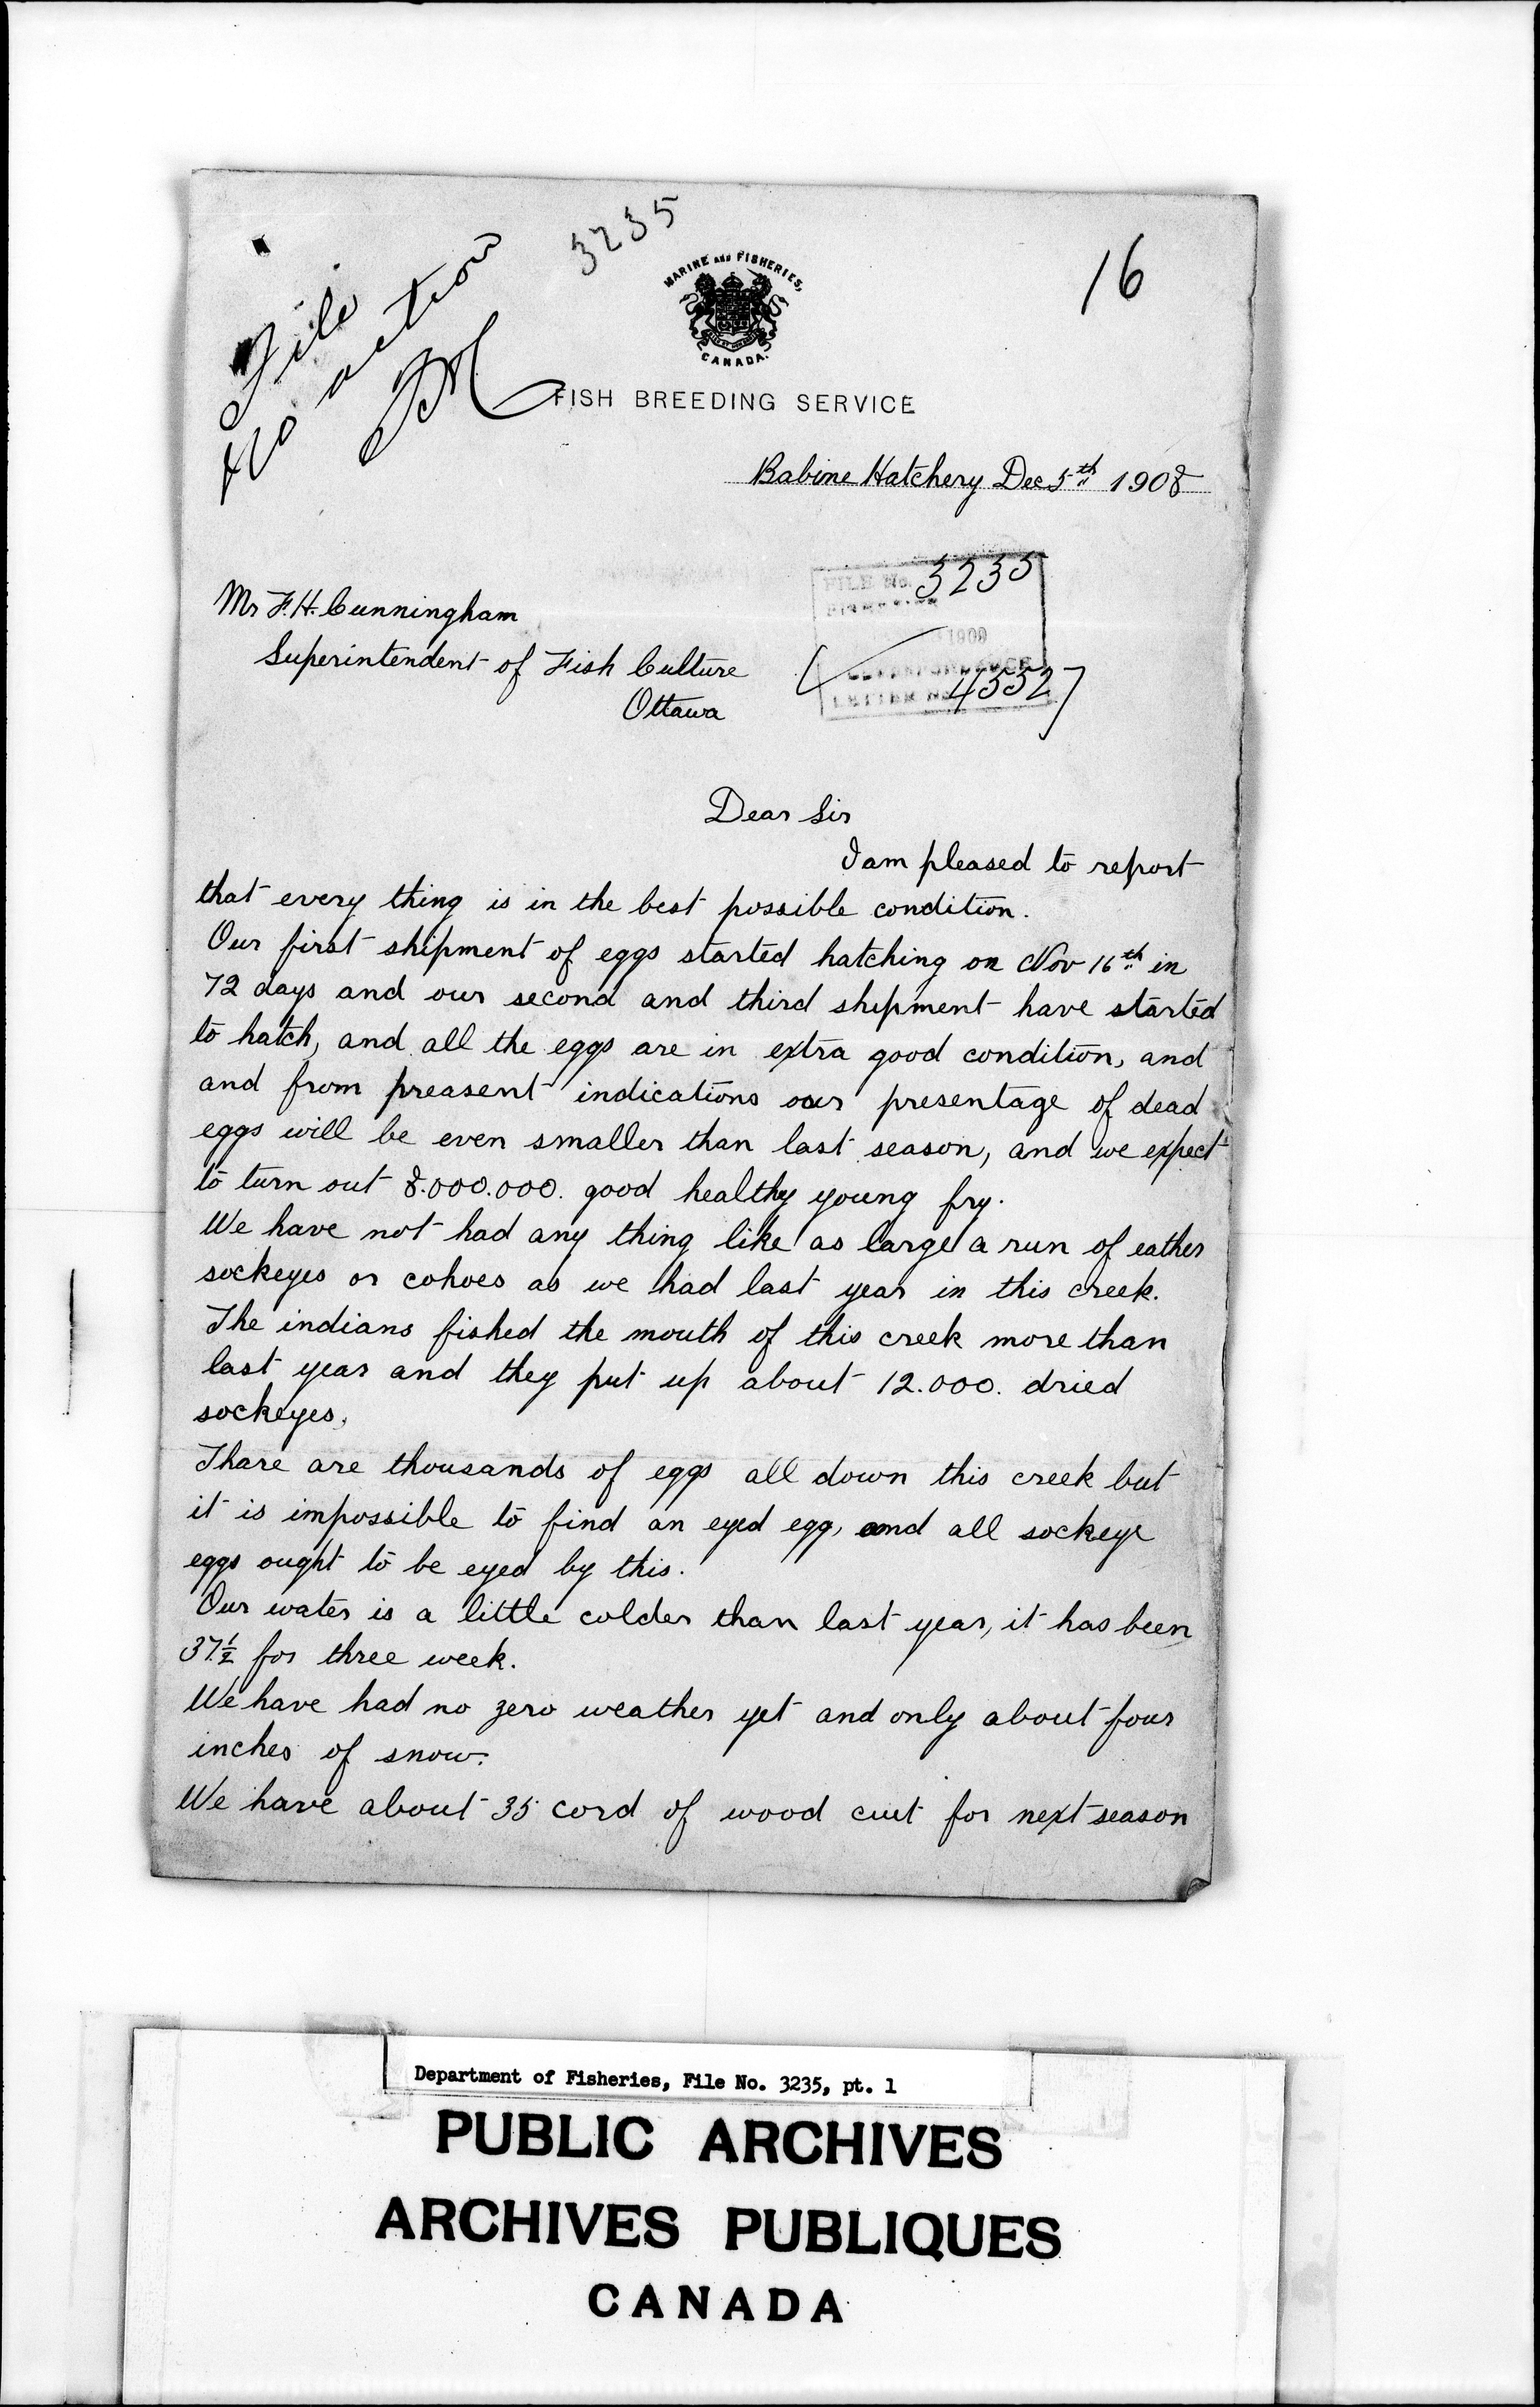 3235
16
File
No action
MARINE AND FISHERIES,
CANADA.
FISH BREEDING SERVICE
Babine Hatchery Dec 5th 1908
FILE No. 3235
1909
Mr F.H. Cunningham
Superintendent of Fish Culture
Ottawa
LETTER No 4552
Dear Sir
I am pleased to report
that every thing is in the best possible condition.
Our first shipment of eggs started hatching on Nov 16th in
72 days and our second and third shipment have started
to hatch, and all the eggs are in extra good condition, and
and from preasent indications our presentage of dead
eggs will be even smaller than last season, and we expect
to turn out 8.000.000. good healthy young fry.
We have not had any thing like as large a run of eather
sockeyes or cohoes as we had last year in this creek.
The indians fished the mouth of this creek more than
last year and they put up about 12.000. dried
sockeyes,
Thare are thousands of eggs all down this creek but
it is impossible to find an eyed egg, and all sockeye
eggs ought to be eyed by this.
Our water is a little colder than last year, it has been
37½ for three week.
We have had no zero weather yet and only about four
inches of snow.
We have about 35 cord of wood cut for next season
Department of Fisheries, File No. 3235, pt. 1
PUBLIC ARCHIVES
ARCHIVES PUBLIQUES
CANADA